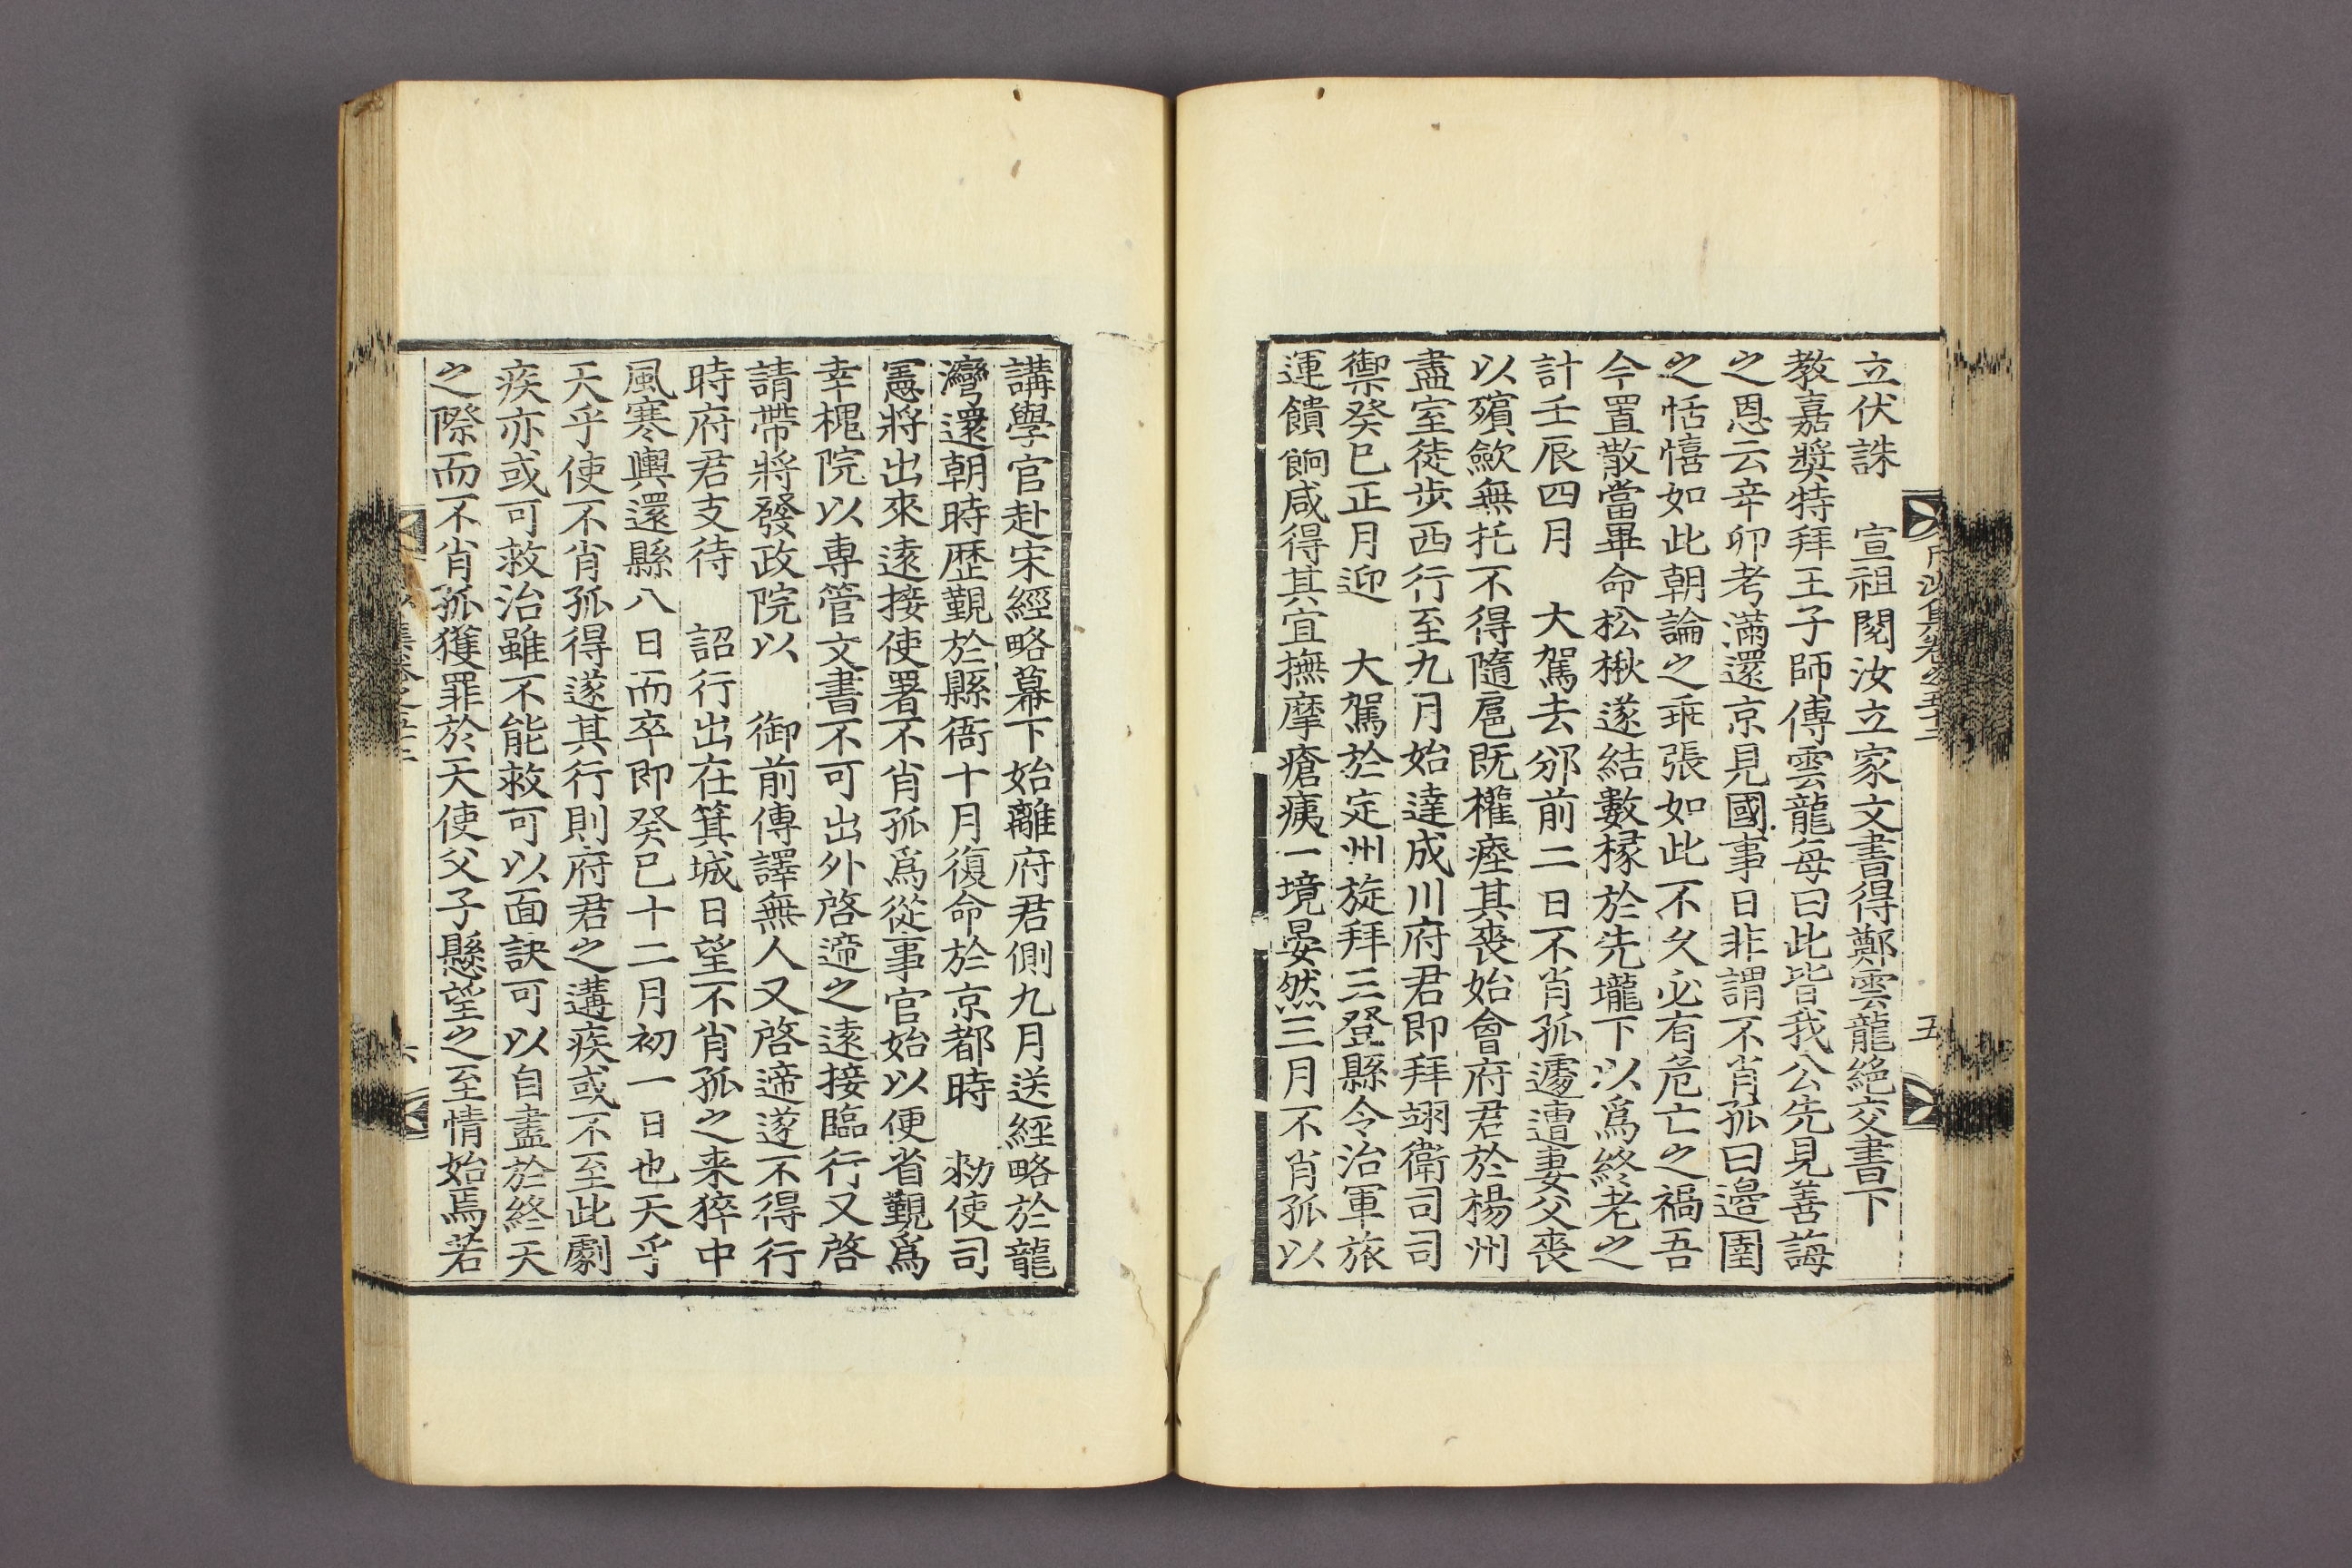 立伏誅　宣祖閱汝立家文書得鄭雲龍絕交書下
教嘉奬特拜王子師傅雲龍每曰此皆我公先見善誨
之恩云辛卯考滿還京見國事日非謂不肖孤曰邊圉
之恬憘如此朝論之乖張如此不久必有危亡之禍吾
今置散當畢命松楸遂結數椽於先壠下以爲終老之
計壬辰四月　大駕去邠前二日不肖孤遽遭妻父喪
以殯歛無托不得隨扈旣權瘞其喪始會府君於楊州
盡室徒步西行至九月始達成川府君卽拜翊衛司司
禦癸巳正月迎　大駕於定州旋拜三登縣令治軍旅
運饋餉咸得其宜撫摩瘡痍一境晏然三月不肖孤以
五
講學官赴宋經略幕下始離府君側九月送経略於龍
灣還朝時歷覲於縣衙十月復命於京都時　勑使司
憲將出來遠接使署不肖孤爲從事官始以便省覲爲
幸槐院以專管文書不可出外啓遞之遠接臨行又啓
請帶將發政院以　御前傳譯無人又啓遞遂不得行
時府君支待　詔行出在箕城日望不肖孤之来猝中
風寒輿還縣八日而卒卽癸巳十二月初一日也天乎
天乎使不肖孤得遂其行則府君之遘疾或不至此劇
疾亦或可救治雖不能救可以面訣可以自盡於終天
之際而不肖孤獲罪於天使父子懸望之至情始焉若
六